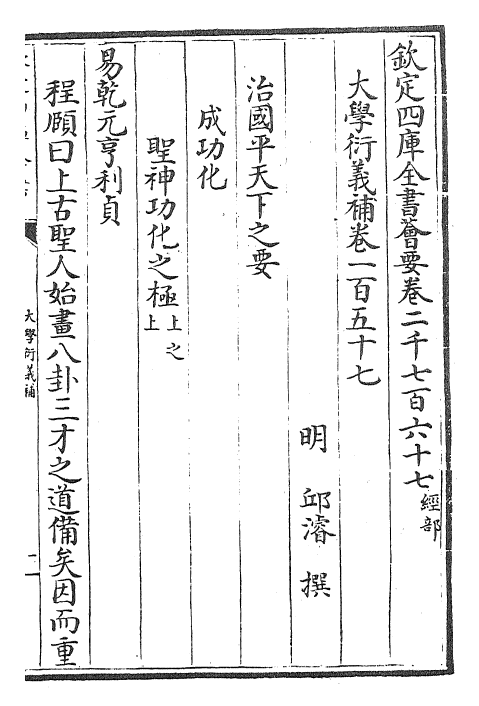 欽定四庫全書薈要卷二千七百六十七經部
大學衍義補卷一百五十七
明 邱濬 撰
治國平天下之要
成功化
聖神功化之極上之上
易乾元亨利貞
程頤曰上古聖人始畫八卦三才之道備矣因而重
大學衍義補